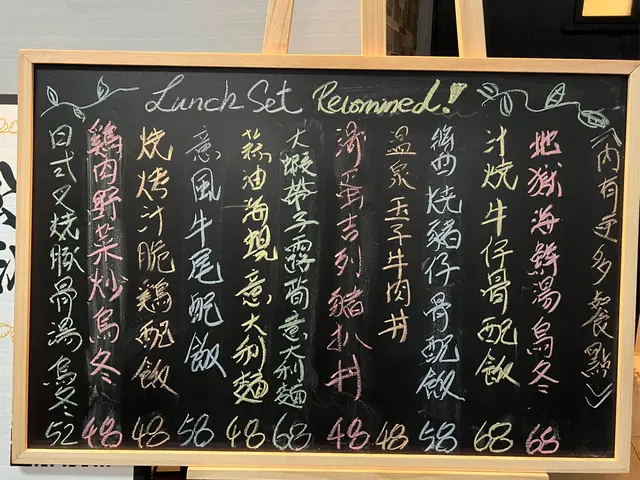 Lunch Set Recommed!
〈內有更多餐點〉
地獄海鮮湯烏冬 68
汁燒牛仔骨配飯 68
燒豬仔骨配飯 58
温泉玉子牛肉丼 48
滑蛋吉列豬扒丼 48
大蝦帶子露筍意大利麵 68
蒜油海蜆意大利麵 48
意風牛尾配飯 58
燒烤汁脆鷄配飯 48
鷄肉野菜炒烏冬 48
日式叉燒豚骨湯烏冬 52